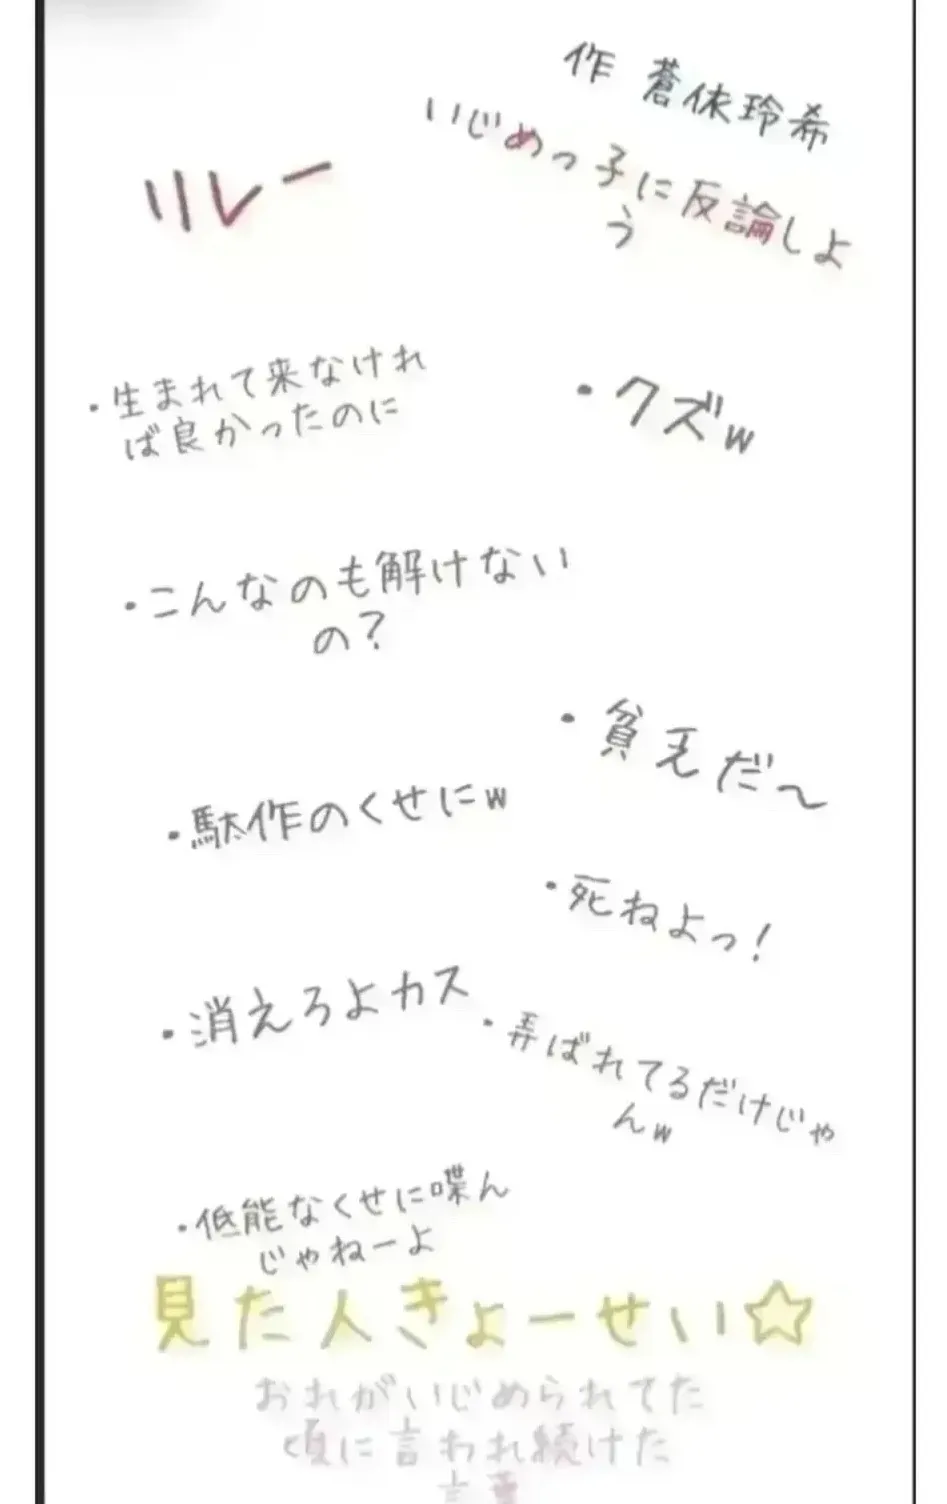 作 蒼依玲希
いじめっ子に反論しよ
う
リレー
・生まれて来なけれ
ば良かったのに
・クズw
・こんなのも解けない
の？
・貧乏だ〜
・駄作のくせにw
・死ねよっ！
・消えろよカス
・弄ばれてるだけじゃ
んw
・低能なくせに喋ん
じゃねーよ
見た人きょーせい☆
おれがいじめられてた
頃に言われ続けた